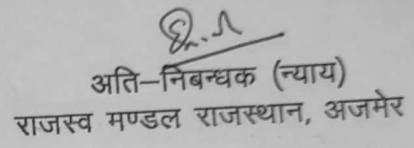 अति–निबन्धक (न्याय)
राजस्व मण्डल राजस्थान, अजमेर